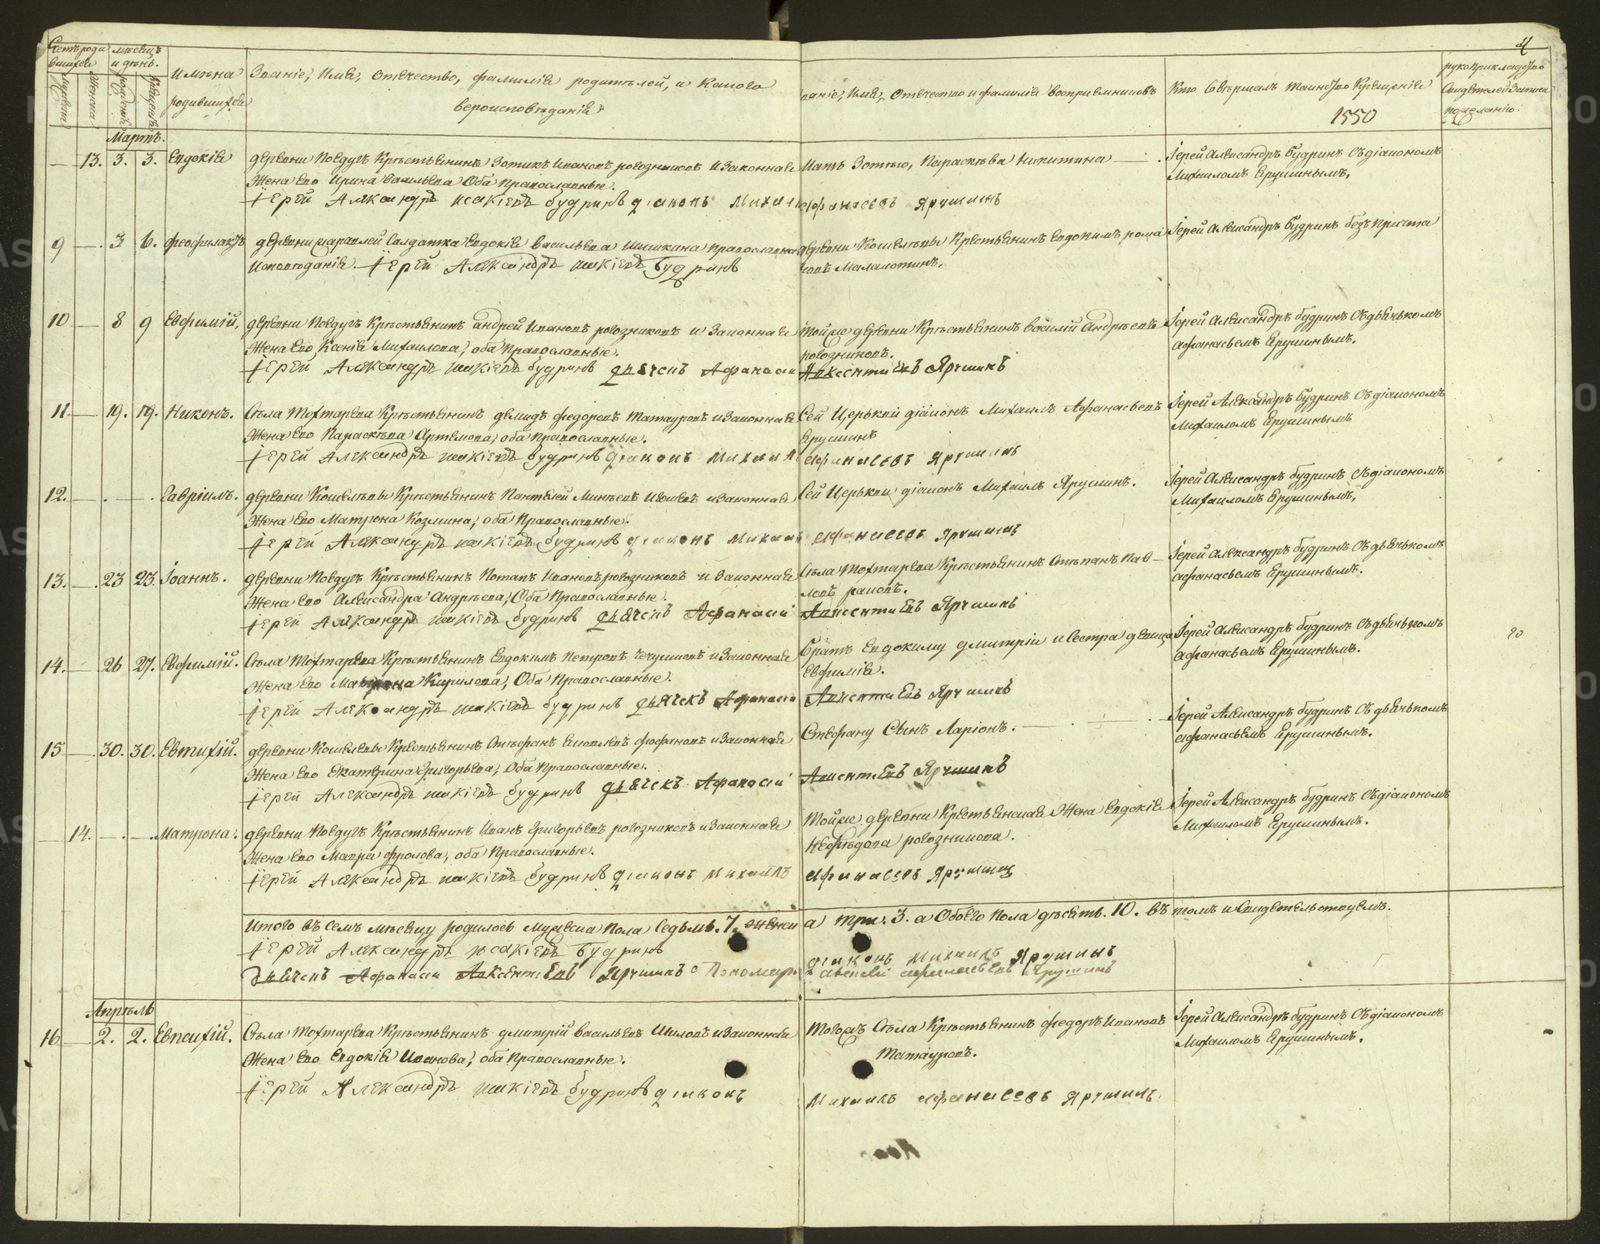 Счетъ роди
вшихся
мѣсяцъ
и день.
Имѣна
родившихся
Званіе, Имя, отечество, фамилія родителей, и какого
вероисповѣданія
Званіе, Имя, Отечество и фамилія воспріемниковъ
Кто совѣршалъ таинство крещенія
1550
рукоприкладство
свидѣтелей записи
по желанію.
4
Мартъ.
13. 3. 3. Евдокія
деревни Повдугъ Крестьянинъ Зотикъ Ивановъ рогозниковъ и Законная
Жена Его Ирина Васильева Оба православные.
Іерей Александръ Исакіевъ Будринъ діаконъ Михаилъ
Мать Зотею, Параскѣва Никитина
Афанасьевъ Ярушинъ
Іерей Александръ Будринъ Съ діакономъ
Михаиломъ Ерушинымъ.
9 3 6. Феофилактъ
деревни Солдатка Евдокія Васильева Шишкина православнаго
Исповѣданія. Іерей Александръ Исакіевъ Будринъ
деревни Кошелевы Крестьянинъ Евдокимъ
Іерей Александръ Будринъ безъ причта
10 8 9 Евфимій.
деревни Повдугъ Крестьянинъ андрей Ивановъ рогозниковъ и Законная
Жена Его Ксенія Михаилова, оба православные.
Іерей Александръ Исакіевъ Будринъ дьячекъ Афанасій
Тойже деревни Крестьянинъ Василій Андреевъ
рогозниковъ.
Авксентиевъ Ярушинъ
Іерей Александръ Будринъ Съ дьячькомъ
афанасьемъ Ерушинымъ.
11 19. 19. Никонъ.
Села Тохтарева Крестьянинъ демидъ федоровъ Татауровъ и Законная
Жена Его Параскѣва Артемова, оба православные.
Іерей Александръ Исакіевъ Будринъ діаконъ Михаилъ
Сей Церькви діаконъ Михаилъ Афанасьевъ
Ерушинъ
Афанасьевъ Ярушинъ
Іерей Александръ Будринъ Съ діакономъ
Михаиломъ Ерушинымъ
12. Гавріилъ.
деревни Кошелевы Крестьянинъ и Законная
Жена Его Матрона Козмина, оба православные.
Іерей Александръ Исакіевъ Будринъ діаконъ Михаилъ
Сей Церькви діаконъ Михаилъ Ярушинъ.
Афанасьевъ Ярушинъ
Іерей Александръ Будринъ Съ діакономъ
Михаиломъ Ерушинымъ.
13. 23 23 Іоаннъ.
деревни Повдугъ Крестьянинъ Потапъ Ивановъ рогозниковъ и Законная
Жена Его Александра Андреева, Оба православные.
Іерей Александръ Исакіевъ Будринъ дьячекъ Афанасій
Села Тохтарева Крестьянинъ Стѣпанъ Пав-
ловъ
Авксентиевъ Ярушинъ
Іерей Александръ Будринъ Съ дьячькомъ
афанасьемъ Ерушинымъ.
14. 26 27. Евфимій.
Села Тохтарева Крестьянинъ Евдокимъ Петровъ и Законная
Жена Его Матрона Кирилова, Оба православные.
Іерей Александръ Исакіевъ Будринъ дьячекъ Афанасій
Братъ Евдокиму дмитрій и Сестра девица
Евфимія.
Авксентиевъ Ярушинъ
Іерей Александръ Будринъ Съ дьячькомъ
афанасьемъ Ерушинымъ.
90
15 30. 30. Евтихій.
деревни Кошелевы Крестьянинъ Стефанъ и Законная
Жена Его Екатерина Григорьева, Оба православные.
Іерей Александръ Исакіевъ Будринъ дьячекъ Афанасій
Стефану Сынъ Ларіонъ.
Авксентиевъ Ярушинъ
Іерей Александръ Будринъ Съ дьячькомъ
афанасьемъ Ерушинымъ.
14. Матрона.
деревни Повдугъ Крестьянинъ Иванъ Григорьевъ рогозниковъ и Законная
Жена Его Мавра Фролова, оба православные.
Іерей Александръ Исакіевъ Будринъ діаконъ Михаилъ
Тойже деревни Крестьянская Жена Евдокія
Нефѣдова рогозникова.
Афанасьевъ Ярушинъ
Іерей Александръ Будринъ Съ діакономъ
Михаиломъ Ерушинымъ.
Итого въ семъ мѣсяцу родилось Мужеска Пола Седьмь. 7. женска три. 3. а Обоего Пола десять. 10. въ томъ и свидетельствуемъ.
Іерей Александръ Исакіевъ Будринъ
діаконъ Михаилъ Ярушинъ
Дьячекъ Афанасій Авксентиевъ Ярушинъ Пономарь Ярушинъ
Апрѣль
16 2. 2. Евпсихій.
Села Тохтарева Крестьянинъ дмитрій Васильевъ Шиловъ и Законная
Жена Его Евдокія Иванова, оба православные.
Іерей Александръ Исакіевъ Будринъ діаконъ
Тогожъ Села Крестьянинъ федоръ Ивановъ
Татауровъ.
Михаилъ Афанасьевъ Ярушинъ
Іерей Александръ Будринъ Съ діакономъ
Михаиломъ Ерушинымъ.